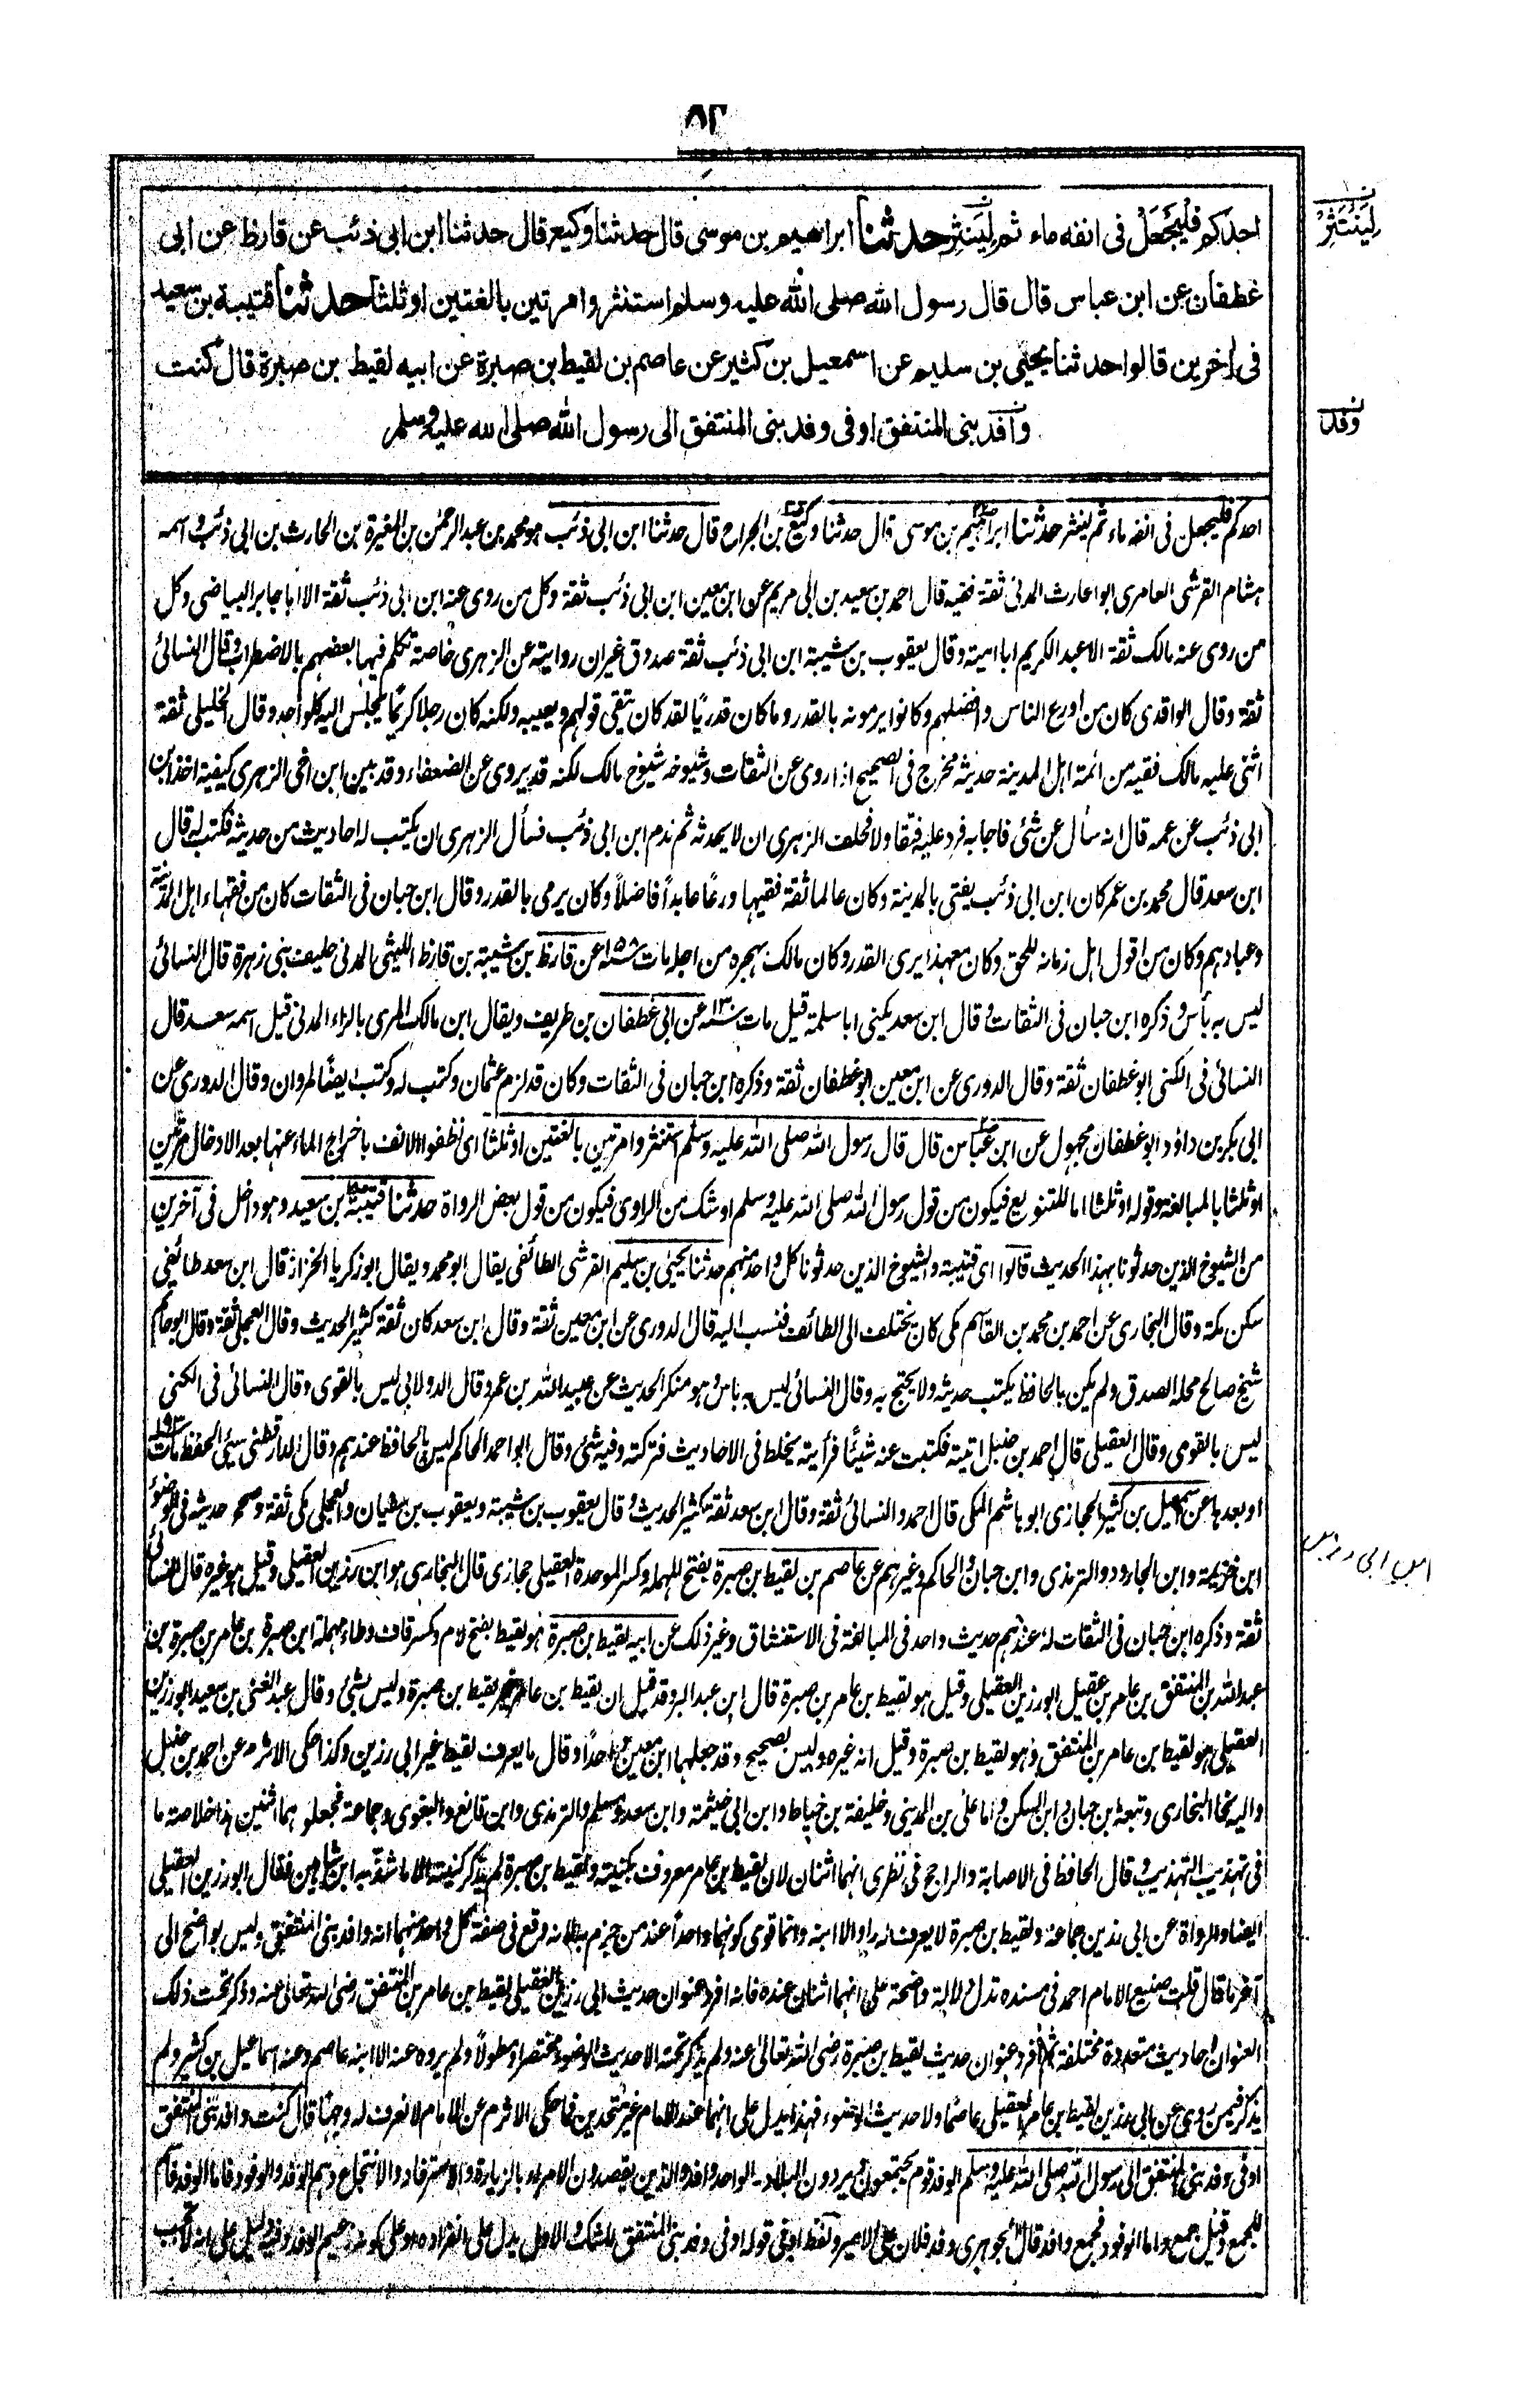 ٨٢
احدكم فليجعل فى انفه ماء ثم لينثر حدثنا ابراهيم بن موسى قال حدثنا وكيع قال حدثنا ابن ابى ذئب عن قارظ عن ابى
لينتثر
غطفان عن ابن عباس قال قال رسول الله صلى الله عليه وسلم استنثروا مرتين بالغتين او ثلثا حدثنا قتيبة بن سعيد
فى اخرين قالوا حدثنا يحيى بن سليم عن اسمعيل بن كثير عن عاصم بن لقيط بن صبرة عن ابيه لقيط بن صبرة قال كنت
وافد بنى المنتفق او فى وفد بنى المنتفق الى رسول الله صلى الله عليه وسلم
وفد
احدكم فليجعل فى انفه ماء ثم لينثر حدثنا ابراهيم بن موسى قال حدثنا وكيع بن الجراح قال حدثنا ابن ابى ذئب هو محمد بن عبد الرحمن بن المغيرة بن الحارث بن ابى ذئب واسمه
هشام القرشى العامرى ابو الحارث المدنى ثقة فقيه قال احمد بن سعيد بن ابى مريم عن ابن معين ابن ابى ذئب ثقة وكل من روى عنه ابن ابى ذئب ثقة الا ابا جابر البياضى وكل
من روى عنه مالك ثقة الا عبد الكريم ابا امية وقال يعقوب بن شيبة ابن ابى ذئب ثقة صدوق غير ان روايته عن الزهرى خاصة تكلم فيها بعضهم بالاضطراب وقال النسائى
ثقة وقال الواقدى كان من اورع الناس وافضلهم وكانوا يرمونه بالقدر وما كان قدريا لقد كان يتقى قولهم ويعيبه ولكنه كان رجلا كريما يجلس اليه كل واحد وقال الخليلى ثقة
اثنى عليه مالك فقيه من ائمة اهل المدينة حديثه مخرج فى الصحيح اذا روى عن الثقات وشيوخه شيوخ مالك لكنه قد يروى عن الضعفاء وقد بين ابن اخى الزهرى كيفية اخذ ابن
ابى ذئب عن عمه قال انه سأل عن شئ فاجابه فرد عليه فتقاولا فحلف الزهرى ان لا يحدثه ثم ندم ابن ابى ذئب فسأل الزهرى ان يكتب له احاديث من حديثه فكتب له قال
ابن سعد قال محمد بن عمر كان ابن ابى ذئب يفتى بالمدينة وكان عالما ثقة فقيها ورعا عابدا فاضلا وكان يرمى بالقدر وقال ابن حبان فى الثقات كان من فقهاء اهل المدينة
وعبادهم وكان من اقول اهل زمانه للحق وكان مع هذا يرى القدر وكان مالك يهجره من اجله مات سنة ١٥٨ عن قارظ بن شيبة بن قارظ الليثى المدنى حليف بنى زهرة قال النسائى
ليس به بأس وذكره ابن حبان فى الثقات وقال ابن سعد يكنى ابا سلمة قيل مات سنة ١٣٠ عن ابى غطفان بن طريف ويقال ابن مالك المرى بالراء المدنى قيل اسمه سعد قال
النسائى فى الكنى ابو غطفان ثقة وقال الدورى عن ابن معين ابو غطفان ثقة وذكره ابن حبان فى الثقات وكان قد لزم عثمان وكتب له وكتب ايضا لمروان وقال الدورى عن
ابى بكر بن داؤد ابو غطفان مجهول عن ابن عباس قال قال رسول الله صلى الله عليه وسلم استنثروا مرتين بالغتين او ثلثا اى نظفوا الانف باخراج الماء عنها بعد الادخال مرتين
او ثلثا بالمبالغة وقوله او ثلثا اما للتنويع فيكون من قول رسول الله صلى الله عليه وسلم او شك من الراوى فيكون من قول بعض الرواة حدثنا قتيبة بن سعيد وهو داخل فى آخرين
من الشيوخ الذين حدثونا بهذا الحديث قالوا اى قتيبة والشيوخ الذين حدثونا كل واحد منهم حدثنا يحيى بن سليم القرشى الطائفى يقال ابو محمد ويقال ابو زكريا الخزاز قال ابن سعد طائفى
سكن مكة وقال البخارى عن احمد بن محمد بن القاسم مكى كان يختلف الى الطائف فنسب اليه قال الدورى عن ابن معين ثقة وقال ابن سعد كان ثقة كثير الحديث وقال العجلى ثقة وقال ابو حاتم
شيخ صالح محله الصدق ولم يكن بالحافظ يكتب حديثه ولا يحتج به وقال النسائى ليس به باس وهو منكر الحديث عن عبيد الله بن عمر وقال الدولابى ليس بالقوى وقال النسائى فى الكنى
ليس بالقوى وقال العقيلى قال احمد بن حنبل اتيته فكتبت عنه شيئا فرأيته يخلط فى الاحاديث فتركته وفيه شئ وقال ابو احمد الحاكم ليس بالحافظ عندهم وقال الدارقطنى سيئ الحفظ مات سنة ١٩٣
او بعدها عن اسمعيل بن كثير الحجازى ابو هاشم المكى قال احمد والنسائى ثقة وقال ابن سعد ثقة كثير الحديث وقال يعقوب بن شيبة ويعقوب بن سفيان والعجلى مكى ثقة وصحح حديثه فى الوضوء
ابن خزيمة وابن الجارود والترمذى وابن حبان والحاكم وغيرهم عن عاصم بن لقيط بن صبرة بفتح المهملة وكسر الموحدة العقيلى حجازى قال البخارى هو ابن رزين العقيلى وقيل هو غيره قال النسائى
ابن ابى رزين
ثقة وذكره ابن حبان فى الثقات له عندهم حديث واحد فى المبالغة فى الاستنشاق وغير ذلك عن ابيه لقيط بن صبرة هو لقيط بفتح لام وكسر قاف وطاء مهملة ابن صبرة بن عامر بن صبرة بن
عبد الله بن المنتفق بن عامر بن عقيل ابو رزين العقيلى وقيل هو لقيط بن عامر بن صبرة قال ابن عبد البر وقد قيل ان لقيط بن عامر غير لقيط بن صبرة وليس بشئ وقال عبد الغنى بن سعيد ابو رزين
العقيلى هو لقيط بن عامر بن المنتفق وهو لقيط بن صبرة وقيل انه غيره وليس بصحيح وقد جعلهما ابن معين واحدا وقال ما يعرف لقيط غير ابى رزين وكذا حكى الاثرم عن احمد بن حنبل
واليه نحا البخارى وتبعه ابن حبان وابن السكن واما على بن المدينى وخليفة بن خياط وابن ابى خيثمة وابن سعد ومسلم والترمذى وابن قانع والبغوى وجماعة فجعلوهما اثنين هذا خلاصة ما
فى تهذيب التهذيب وقال الحافظ فى الاصابة والراجح فى نظرى انهما اثنان لان لقيط بن عامر معروف بكنيته ولقيط بن صبرة لم يذكر كنيته الا ما شذ به ابن شاهين فقال ابو رزين العقيلى
ايضا والرواة عن ابى رزين جماعة ولقيط بن صبرة لا يعرف له راو الا ابنه وانما قوى كونهما واحدا عند من جزم به لانه وقع فى صفة كل واحد منهما انه وافد بنى المنتفق وليس بواضح الى
آخر ما قال قلت صنيع الامام احمد فى مسنده تدل دلالة واضحة على انهما اثنان عنده فانه افرد عنوان حديث ابى رزين العقيلى لقيط بن عامر بن المنتفق رضى الله تعالى عنه وذكر تحت ذلك
العنوان احاديث متعددة مختلفة ثم افرد عنوان حديث لقيط بن صبرة رضى الله تعالى عنه ولم يذكر تحته الا حديث الوضوء مختصرا ومطولا ولم يروه عنه الا ابنه عاصم وعنه اسماعيل بن كثير ولم
يذكر فيمن روى عن ابى رزين لقيط بن عامر العقيلى عاصما ولا حديث الوضوء فهذا يدل على انهما عند الامام غير متحدين فما حكى الاثرم عن الامام لا نعرف له وجها قال كنت وافد بنى المنتفق
او فى وفد بنى المنتفق الى رسول الله صلى الله عليه وسلم الوفد قوم يجتمعون ويردون البلاد الواحد وافد والذين يقصدون الامراء بالزيارة والاسترفاد والانتجاع وهم الوفد والوفود فاما الوفد فاسم
للجمع وقيل جمع واما الوفود فجمع وافد قال الجوهرى وفد فلان على الامير ولفظ او فى قوله او فى وفد بنى المنتفق للشك والاول يدل على انفراده او على كونه زعيم الوفد وفيه دليل على انه لا يجب